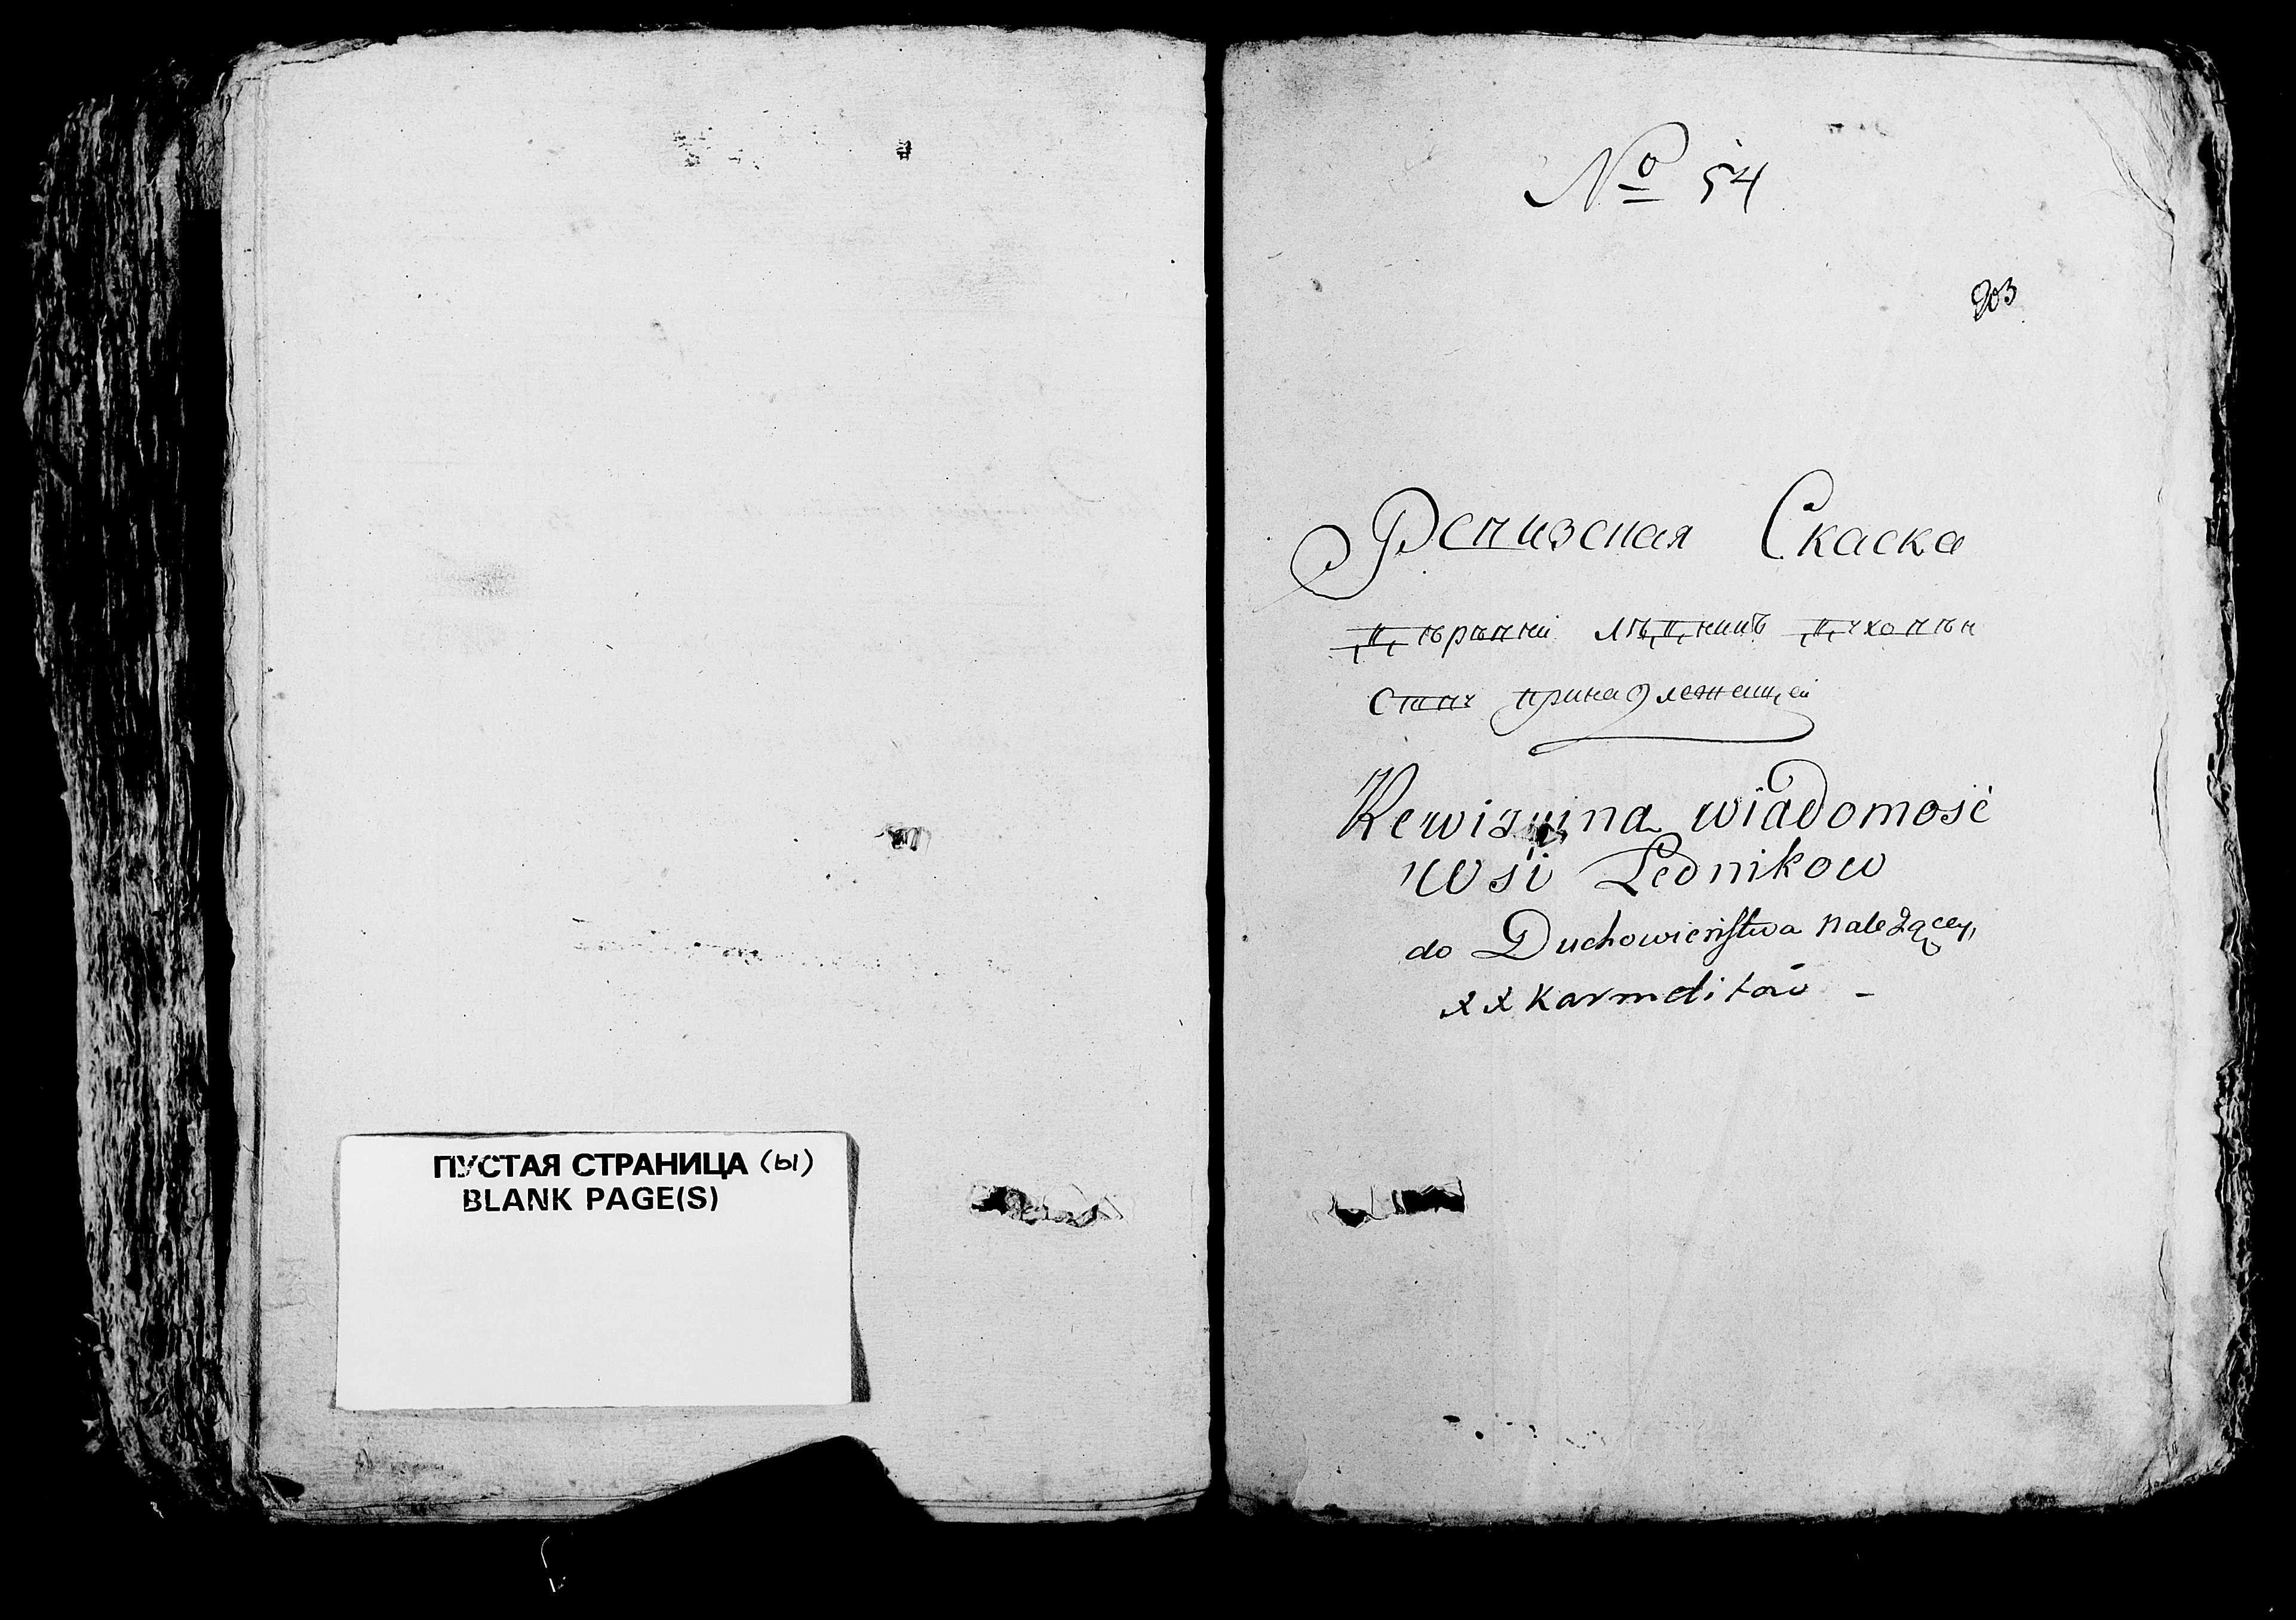 ПУСТАЯ СТРАНИЦА (Ы)
BLANK PAGE(S)
№ 54
203
Ревизская Скаска
принадлежащей
Rewizyina wiadomość
Wsi Lednikow
do Duchowieństwa należącey
xx Karmelitow -